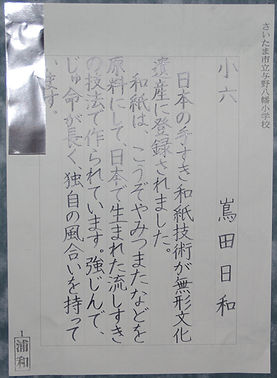 さいたま市立与野八幡小学校
小六　嶌田日和
日本の手すき和紙技術が無形文化
遺産に登録されました。
和紙は、こうぞやみつまたなどを
原料にして、日本で生まれた流しすき
の技法で作られています。強じんで、
じゅ命が長く、独自の風合いを持って
います。
浦和